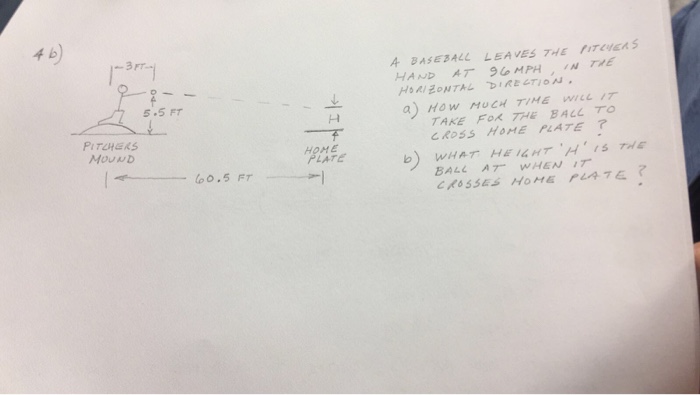 4 b)
3 FT
5.5 FT
H
PITCHERS
MOUND
HOME
PLATE
60.5 FT
A BASEBALL LEAVES THE PITCHERS
HAND AT 96 MPH, IN THE
HORIZONTAL DIRECTION.
a) HOW MUCH TIME WILL IT
TAKE FOR THE BALL TO
CROSS HOME PLATE ?
b) WHAT HEIGHT 'H' IS THE
BALL AT WHEN IT
CROSSES HOME PLATE ?